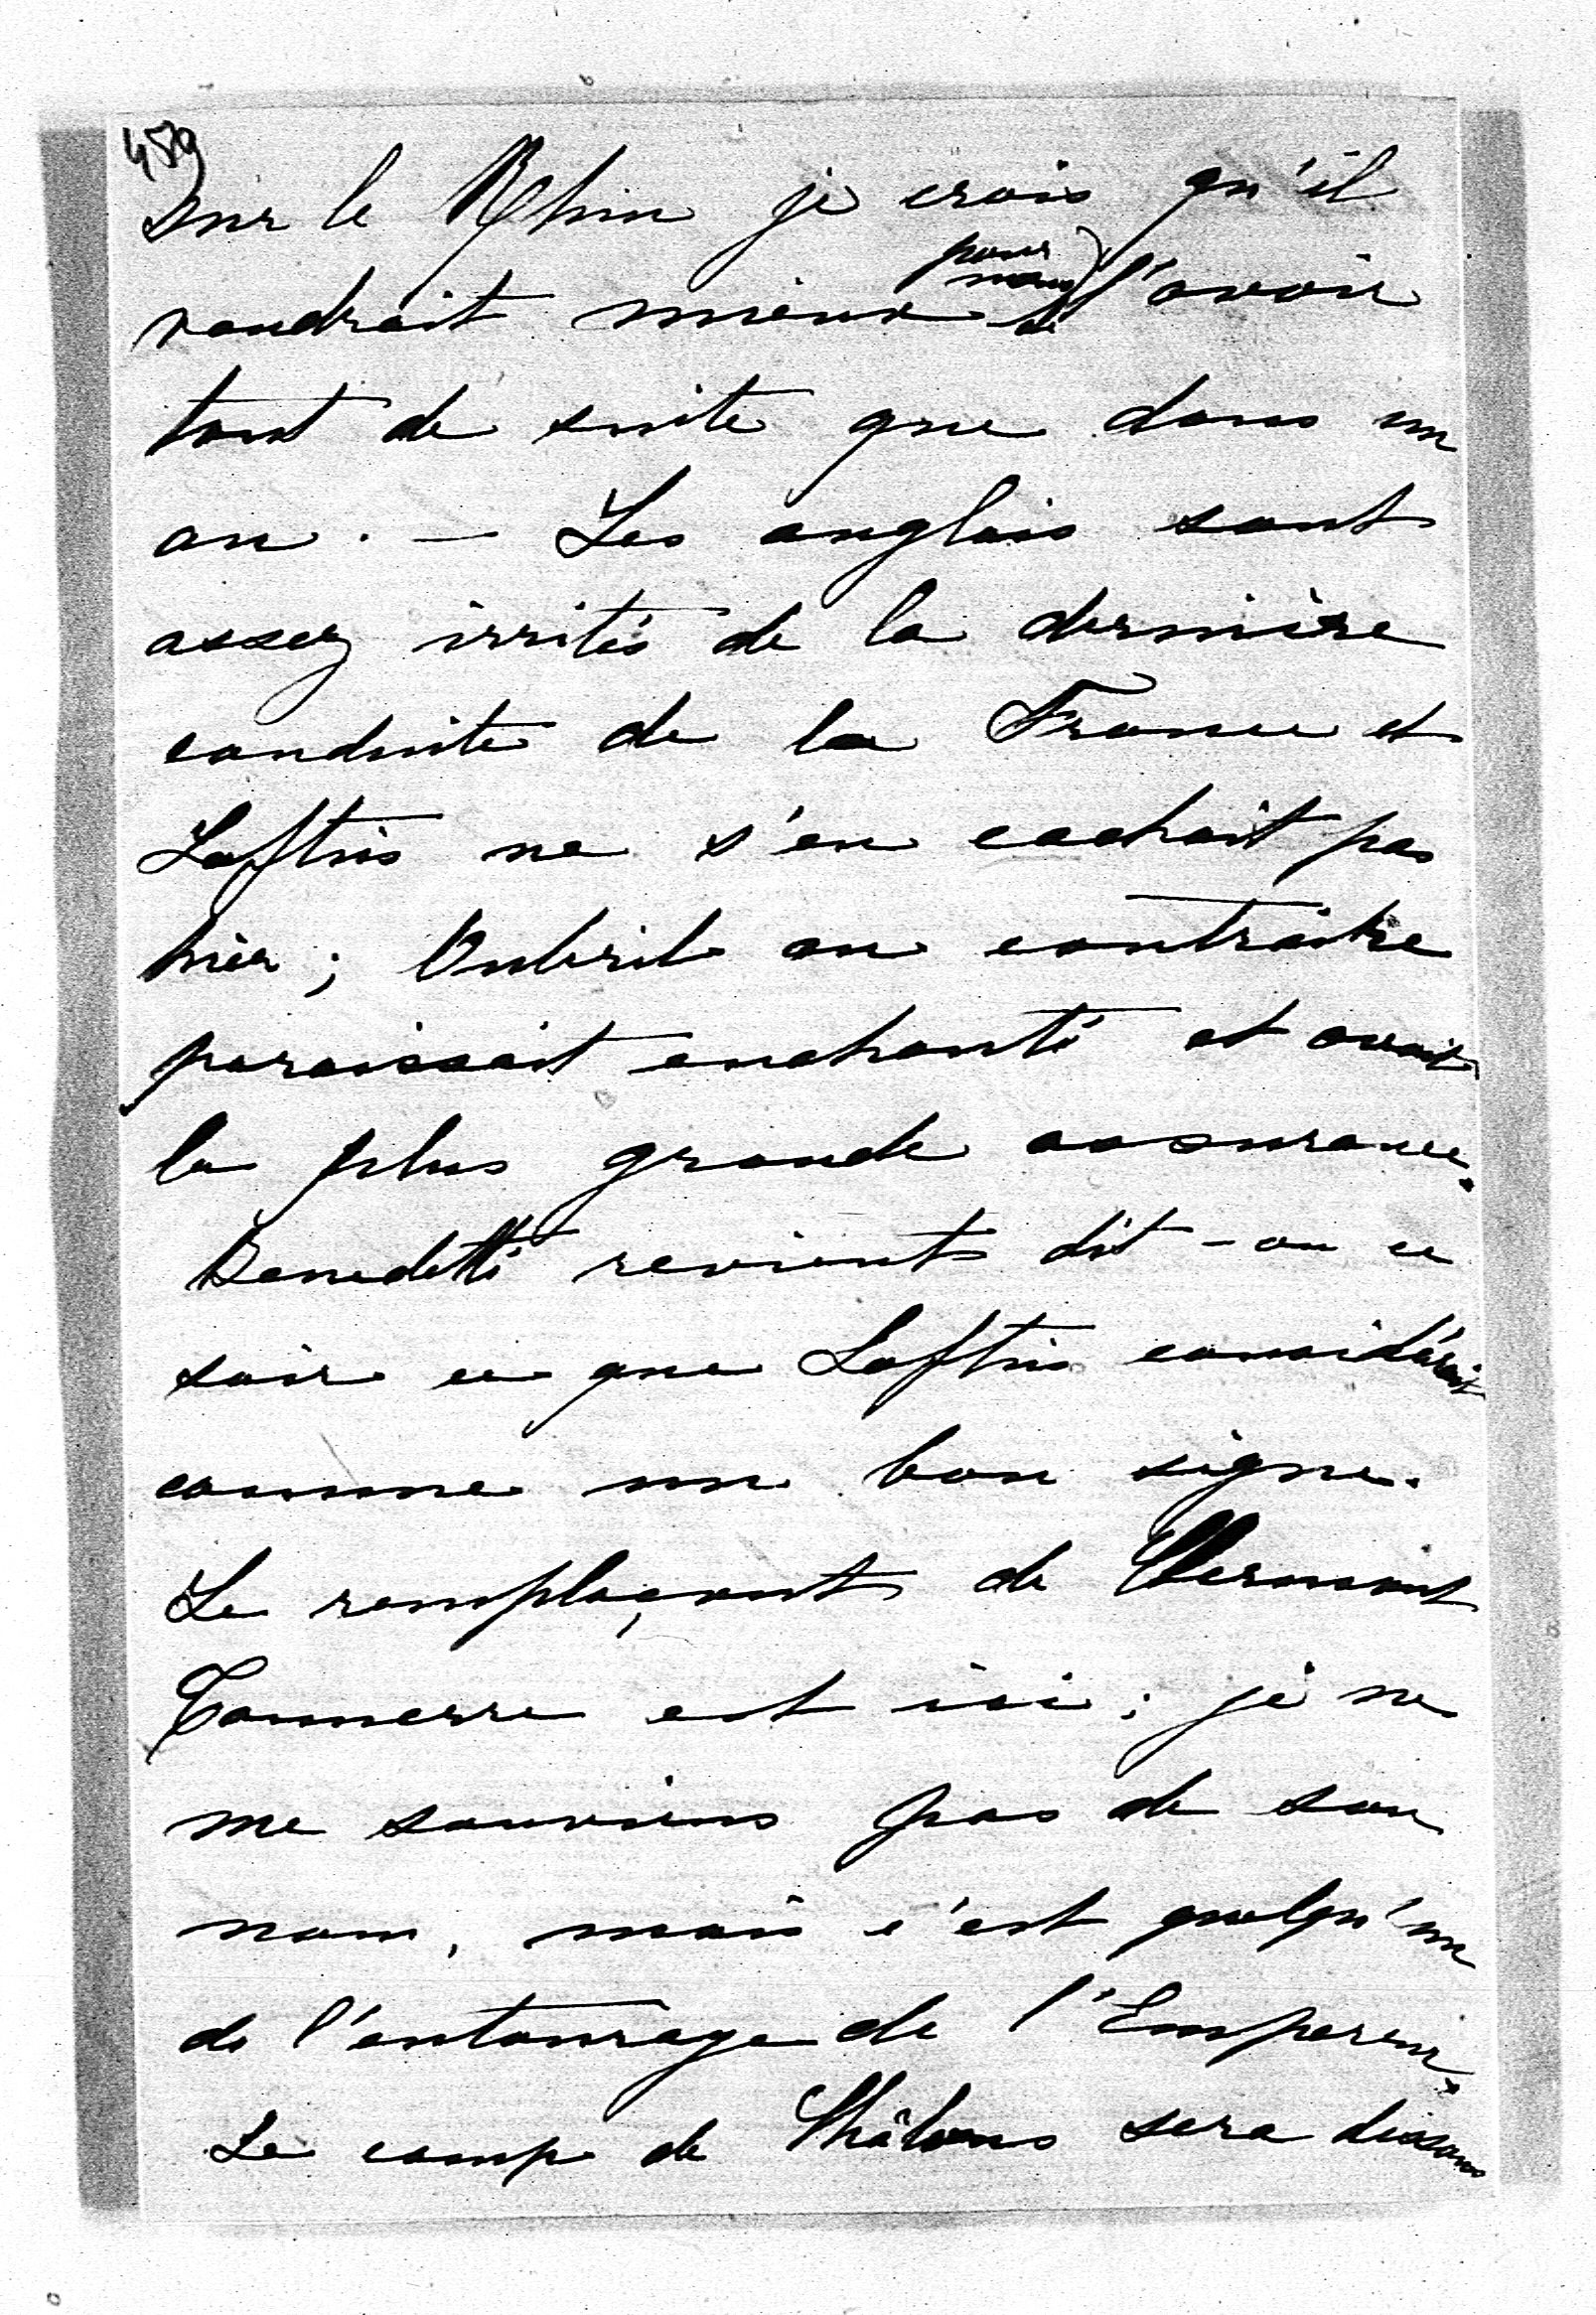 459
sur le Rhin je crois qu'il
pour
nous
vaudrait mieux de l'avoir
tout de suite que dans un
an. — Les anglais sont
assez irrités de la dernière
conduite de la France et
Loftus ne s'en cachait pas
hier; Oubril au contraire
paraissait enchanté et avait
la plus grande assurance.
Benedetti revient dit-on ce
soir ce que Loftus considérait
comme un bon signe.
Le remplaçant de Clermont
Tonnerre est ici; je ne
me souviens pas de son
nom, mais c'est quelqu'un
de l'entourage de l'Empereur.
Le camp de Châlons sera dissous